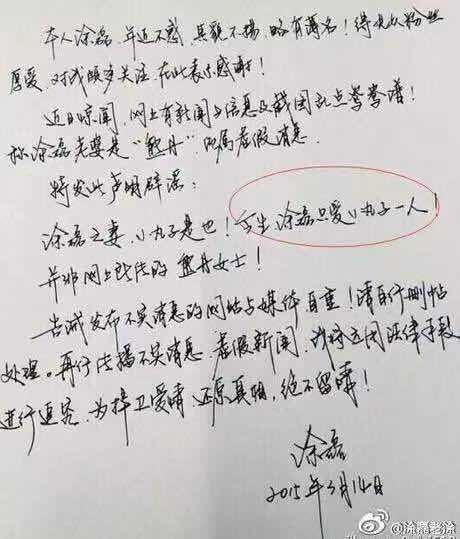 本人涂磊,年近不惑,其貌不扬,略有薄名!得大众粉丝
厚爱,对我颇多关注,在此表示感谢!
近日惊闻,网上有新闻与信息及截图乱点鸳鸯谱!
称涂磊老婆是“熊丹”,纯属虚假消息.
特发此声明辟谣:
涂磊之妻,小丸子是也!今生,涂磊只爱小丸子一人!
并非网上所传的熊丹女士!
告诫发布不实消息的网站与媒体自重!请自行删帖
处理。再行传播不实消息、虚假新闻,我将运用法律手段
进行追究,为捍卫爱情,还原真相,绝不留情!
涂磊
2015年3月14日